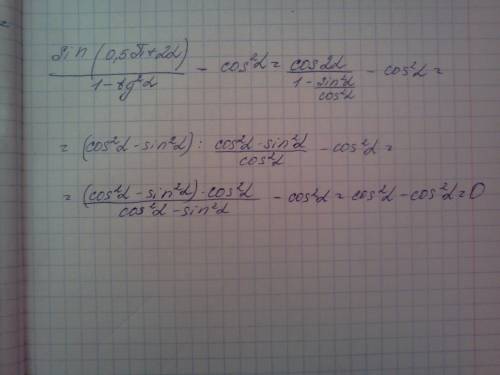 sin (0,5π+2α) / 1−tg²α − cos²α = cos2α / 1 − sin²α/cos²α − cos²α =
= (cos²α − sin²α) : cos²α − sin²α / cos²α − cos²α =
= (cos²α − sin²α)·cos²α / cos²α − sin²α − cos²α = cos²α − cos²α = 0